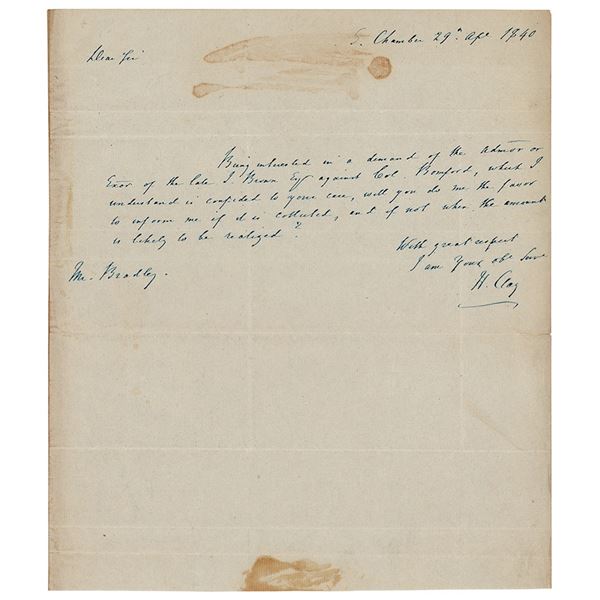 S. Chamber 29th Apl. 1840
Dear Sir
Being interested in a demand of the Admor or
Exor of the late J. Brown Esq against Col. Bomford, which I
understand is confided to your care, will you do me the favor
to inform me if it is collected, and if not when the amount
is likely to be realized?
With great respect
I am Your obt Servt
H. Clay
Mr. Bradley.